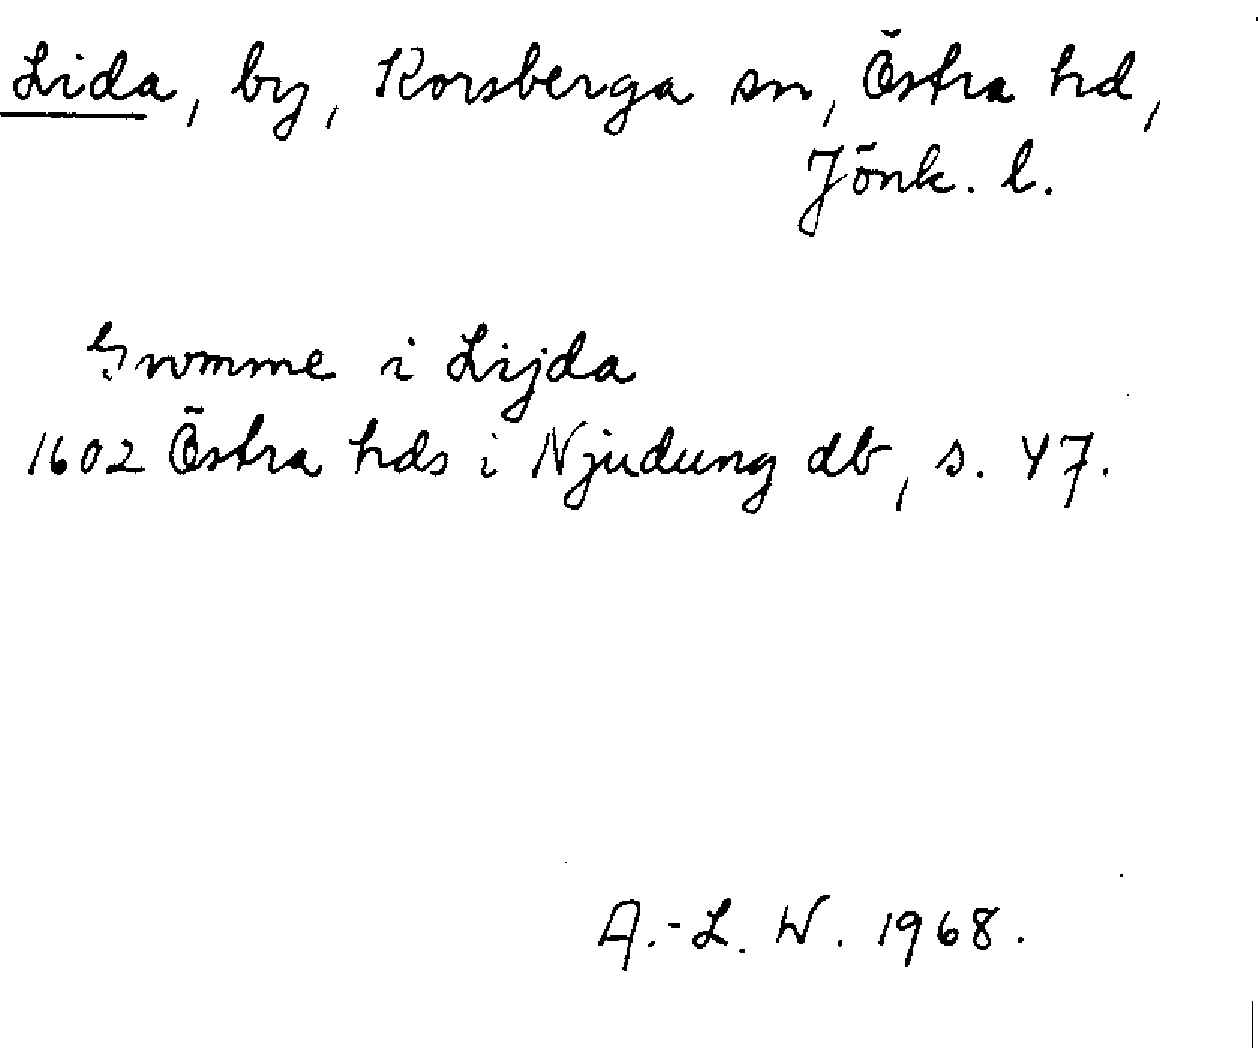 Lida, by, Korsberga sn, Östra hd,
Jönk. l.
i Lijda
1602 Östra hds i Njudung db, s. 47.
A.-L. W. 1968.